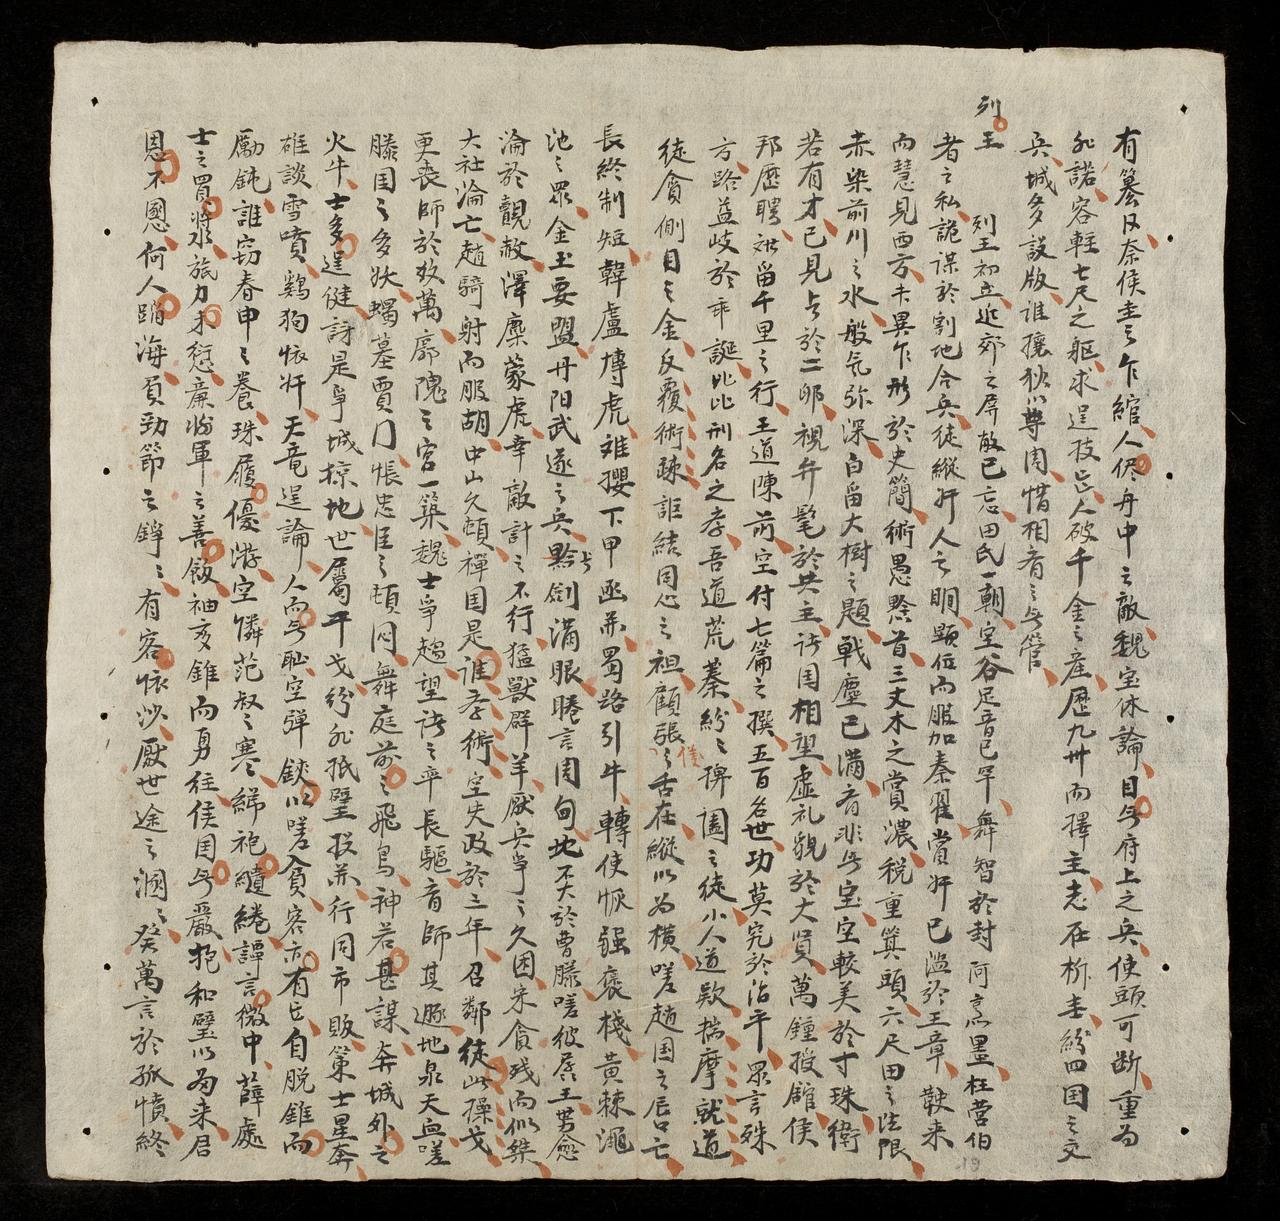 有篡臣奈侯圭之乍綰人侭舟中之敵魏宝休論目与府上之兵使頭可断重為
兆諾容軽七尺之軀求逞技亡人破千金之産歴九卅而擇主志在析圭紛四国之交
兵城多設版誰攘狄以尊周惜相者之与管
列王
列王初立近郊之屏敝已忘田氏一朝空谷足音已罕舞智於封阿烹墨枉営伯
者之私詭謀於割地合兵徒縦奸人之胴顕位而服加秦翟賞奸已濫於王章鞅来
而慧見西方未異乍形於史簡術愚黔首三丈木之賞濃税重箕頭六尺田之法限
赤染前川之水般気弥深白留大樹之題戦塵已満育非与宝空較美於寸珠衛
若有才已見与於二卵視弁髦於共主許周相望虚礼貌於大賢萬鐘授舘侯
邦歴聘攸留千里之行王道陳前空付七篇之撰五百名世功莫究於治平衆言殊
方路益岐於乖誕比比刑名之孝吾道荒蓁紛之稗闔之徒小人道欺揣摩就道
徒貪側目之金反覆術疎詎結同心之袒顧張儀之舌在縦以為横嗟趙国之辰亡
長終制短韓盧博虎难攖下甲函并蜀路引牛轉使恢强褒棧黄棘澠
池之眾金玉要盟丹阳武遂之兵与黔劍滿眼睠言周旬地不大於曹滕嗟彼孱王势愈
淪於觀赦澤麋蒙虎幸敵計之不行猛獣群羊厭兵争之久困宋貪残而似桀
大社淪亡趙騎射而服胡中山久頓禪国是誰孝術空失政於三年召鄰徒此操戈
更喪師於数萬廓隗之宮一築魏士爭趨望諸之率長驅育師其遯地泉天血嗟
滕国之多妖蠋墓賈门悵忠臣之頓冈舞庭前之飛鳥神若甚謀奔城外之
火牛士多逞健詩是爭城掠地世屬干戈紛兆抵璧投并行同市販策士星奔
雄談雪噴鷄狗恢奸天竜逞論人而与恥空彈鋏以嗟貪客亦有亡自脱錐而
勵鈍誰窃春申之養珠履優游空憐范叔之寒綈袍繾綣譚言微中薛處
士之買漿旅力未愆廉将軍之善飯袖亥錐而勇往侯国与嚴抱和璧以為来君
恩不圂何人蹈海負勁節之錚々有客恢沙厭世途之溷々癸萬言於孤憤終